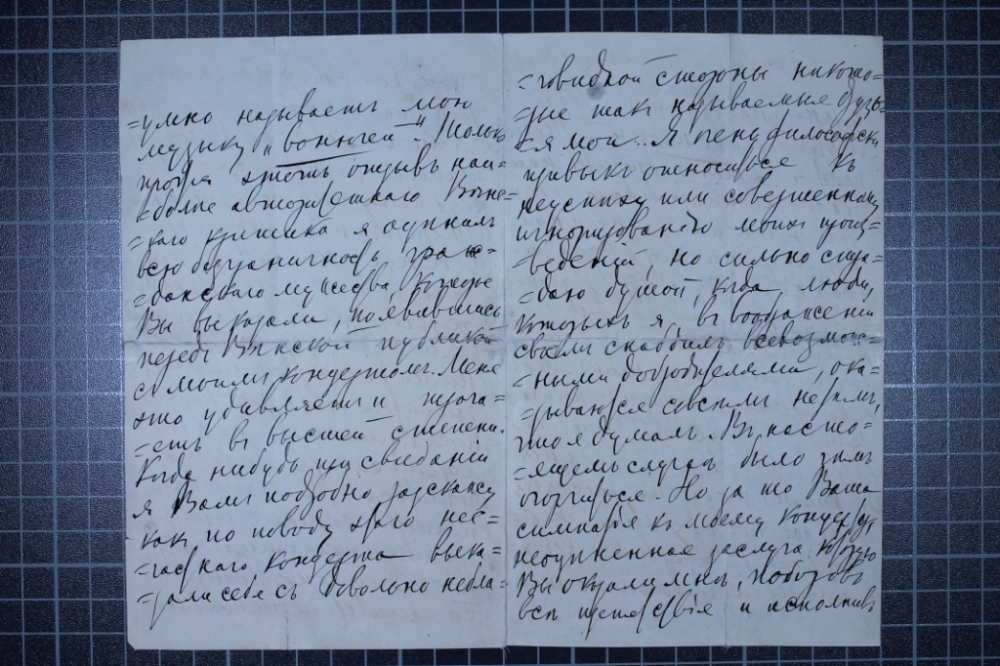 =умно называетъ мою
музыку „вонючей“. Только
пройдя этотъ отзывъ наи=
=болѣе авторитетнаго Вѣне=
=скаго критика я оцѣнилъ
всю безграничность граж=
=данскаго мужества, которое
Вы выказали, появившись
передъ Вѣнской публикой
съ моимъ концертомъ. Меня
это удивляетъ и трога=
=етъ въ высшей степени.
Когда нибудь при свиданіи
я Вамъ подробно разскажу
какъ по поводу этого нес=
=частнаго концерта выка=
=зали себя съ довольно небла=
=говидной стороны нѣкото=
=рые такъ называемые друзь=
=я мои. Я философски
привыкъ относиться къ
неуспѣху или совершенному
игнорированію моихъ произ=
=веденій, но сильно стра=
=даю душой, когда люди,
которыхъ я въ воображеніи
своемъ снабдилъ всевозмож=
=ными добродѣтелями, ока=
=зываются совсѣмъ не тѣмъ,
что я думалъ. Въ насто=
=ящемъ случаѣ было чѣмъ
огорчиться. Но за то Ваша
симпатія къ моему концерту,
неоцѣненная заслуга которую
Вы оказали мнѣ, поборовъ
всѣ препятствія и исполнивъ